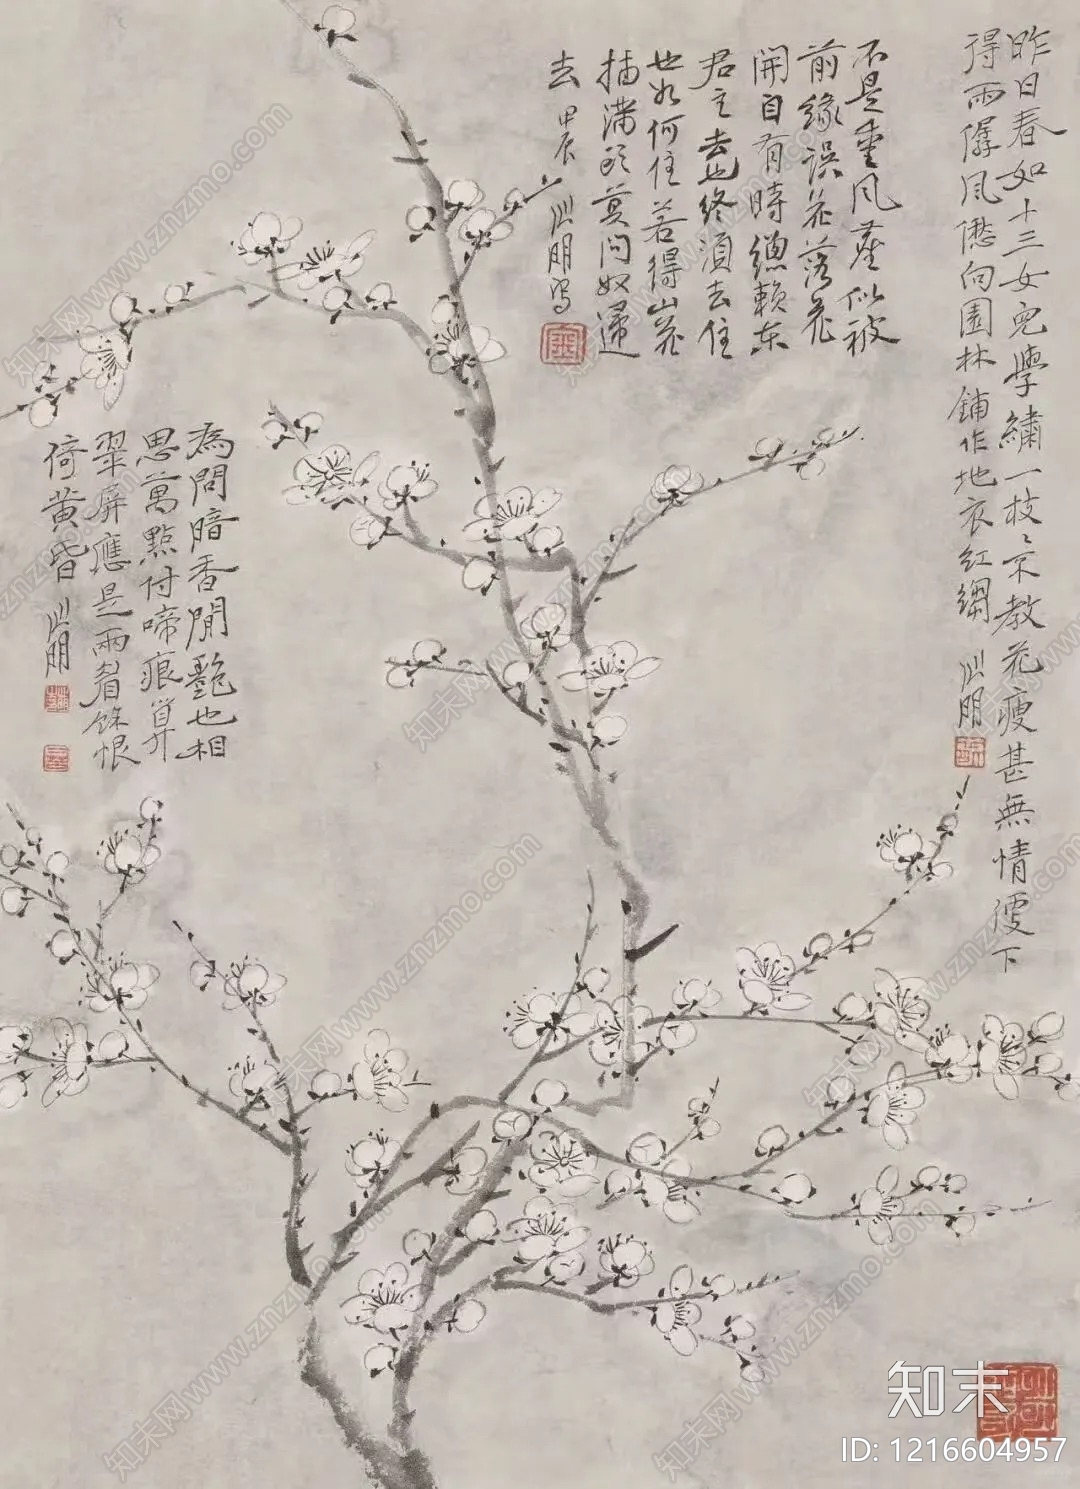 昨日春如十三女兒學繡一枝〻不教花瘦甚無情便下
得雨僝風僽向園林鋪作地衣紅縐
不是愛風塵似被
前緣誤花落花
開自有時總賴東
君主去也終須去住
也如何住若得山花
插滿頭莫問奴歸
去 甲辰
為問暗香閒艷也相
思萬點付啼痕算
翠屏應是兩眉餘恨
倚黃昏
知末
ID: 1216604957
知末网www.znzmo.com